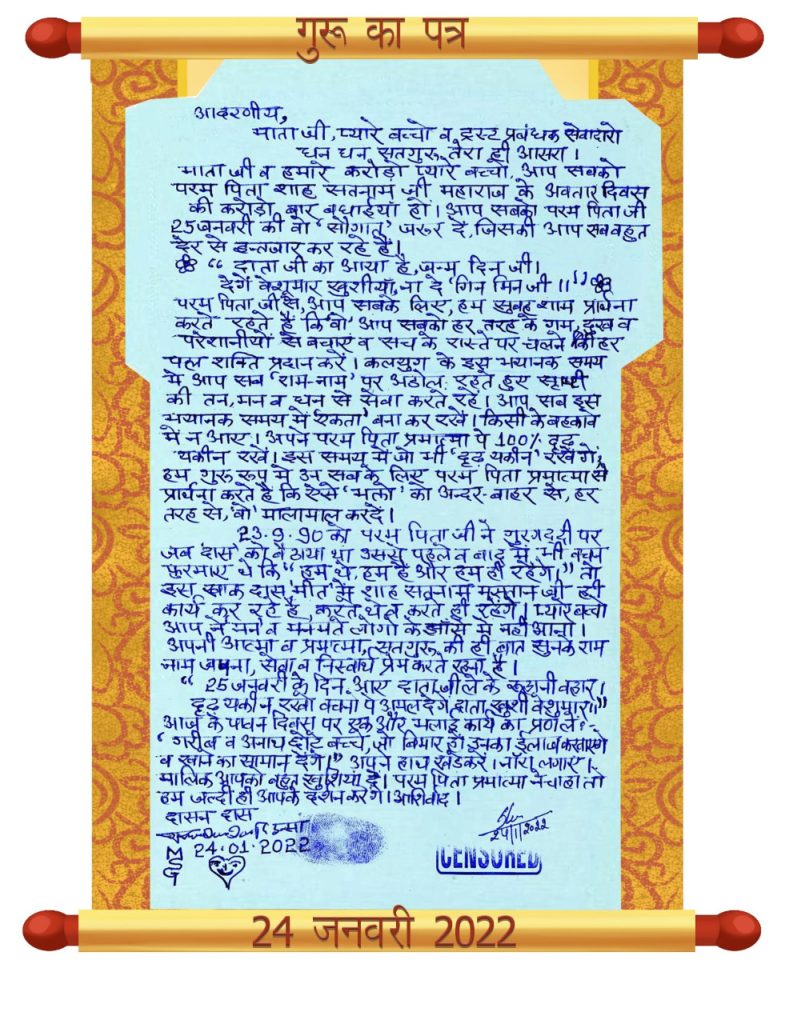 गुरू का पत्र
आदरणीय,
माता जी, प्यारे बच्चो व ट्रस्ट प्रबंधक सेवादारो
धन धन सतगुरू तेरा ही आसरा।
माता जी व हमारे करोड़ो प्यारे बच्चो, आप सबको
परम पिता शाह सतनाम जी महाराज के अवतार दिवस
की करोड़ो बार बधाईयां हों। आप सबको परम पिता जी
25 जनवरी की वो 'सौगात' जरूर दें, जिसकी आप सब बहुत
देर से इन्तजार कर रहे हैं।
“दाता जी का आया है, जन्म दिन जी।
देगें बेशुमार खुशीयां, ना दे गिन मिन जी।।”
परम पिता जी से, आप सबके लिए, हम सुबह शाम प्रार्थना
करते रहते हैं कि 'वो' आप सबको हर तरह के गम, दुख व
परेशानीयों से बचाए व सच के रास्ते पर चलने की हर
पल शक्ति प्रदान करें। कलयुग के इस भयानक समय
में आप सब 'राम-नाम' पर अडोल रहते हुए सृष्टी
की तन, मन व धन से सेवा करते रहें। आप सब इस
भयानक समय में 'एकता' बना कर रखें। किसी के बहकावे
में न आए। अपने परम पिता प्रमात्मा पे 100% दृढ़
यकीन रखें। इस समय में जो भी 'दृढ़ यकीन' रखेगें,
हम गुरू रूप में उन सब के लिए परम पिता प्रमात्मा से
प्रार्थना करते हैं कि ऐसे 'भक्तो' को अन्दर-बाहर से, हर
तरह से, 'वो' मालामाल करदें।
23.9.90 को परम पिता जी ने गुरगद्दी पर
जब 'दास' को बैठाया था उससे पहले व बाद में भी वचन
फुरमाए थे कि “हम थे, हम हैं और हम ही रहेंगे।” तो
इस खाक दास, 'मीत' में शाह सतनाम, मस्तान जी ही
कार्य कर रहे हैं, करते थे व करते ही रहेंगे। प्यारे बच्चो
आप ने मन व मनमते लोगो के झांसे में नहीं आना।
अपनी आत्मा व प्रमात्मा, सतगुरू की ही बात सुनके राम
नाम जपना, सेवा व निस्वार्थ प्रेम करते रहना है।
“25 जनवरी के दिन आए दाता जी ले के रूहानी बहार।
दृढ़ यकीन रखो वचनो पे अमल देगे दाता खुशी बेशुमार।।”
आज के पावन दिवस पर एक और भलाई कार्य का प्रण लें:-
'गरीब व अनाथ छोटे बच्चे, जो बिमार हों उनका ईलाज करवाएगे
व खाने का सामान देंगे।” अपने हाथ खड़े करें। नारा लगाए।
मालिक आपको बहुत खुशियां दें। परम पिता प्रमात्मा ने चाहा तो
हम जल्दी ही आपके दर्शन करेंगे। आशिर्वाद।
दासन दास
24.01.2022
MSG
CENSORED
24 जनवरी 2022